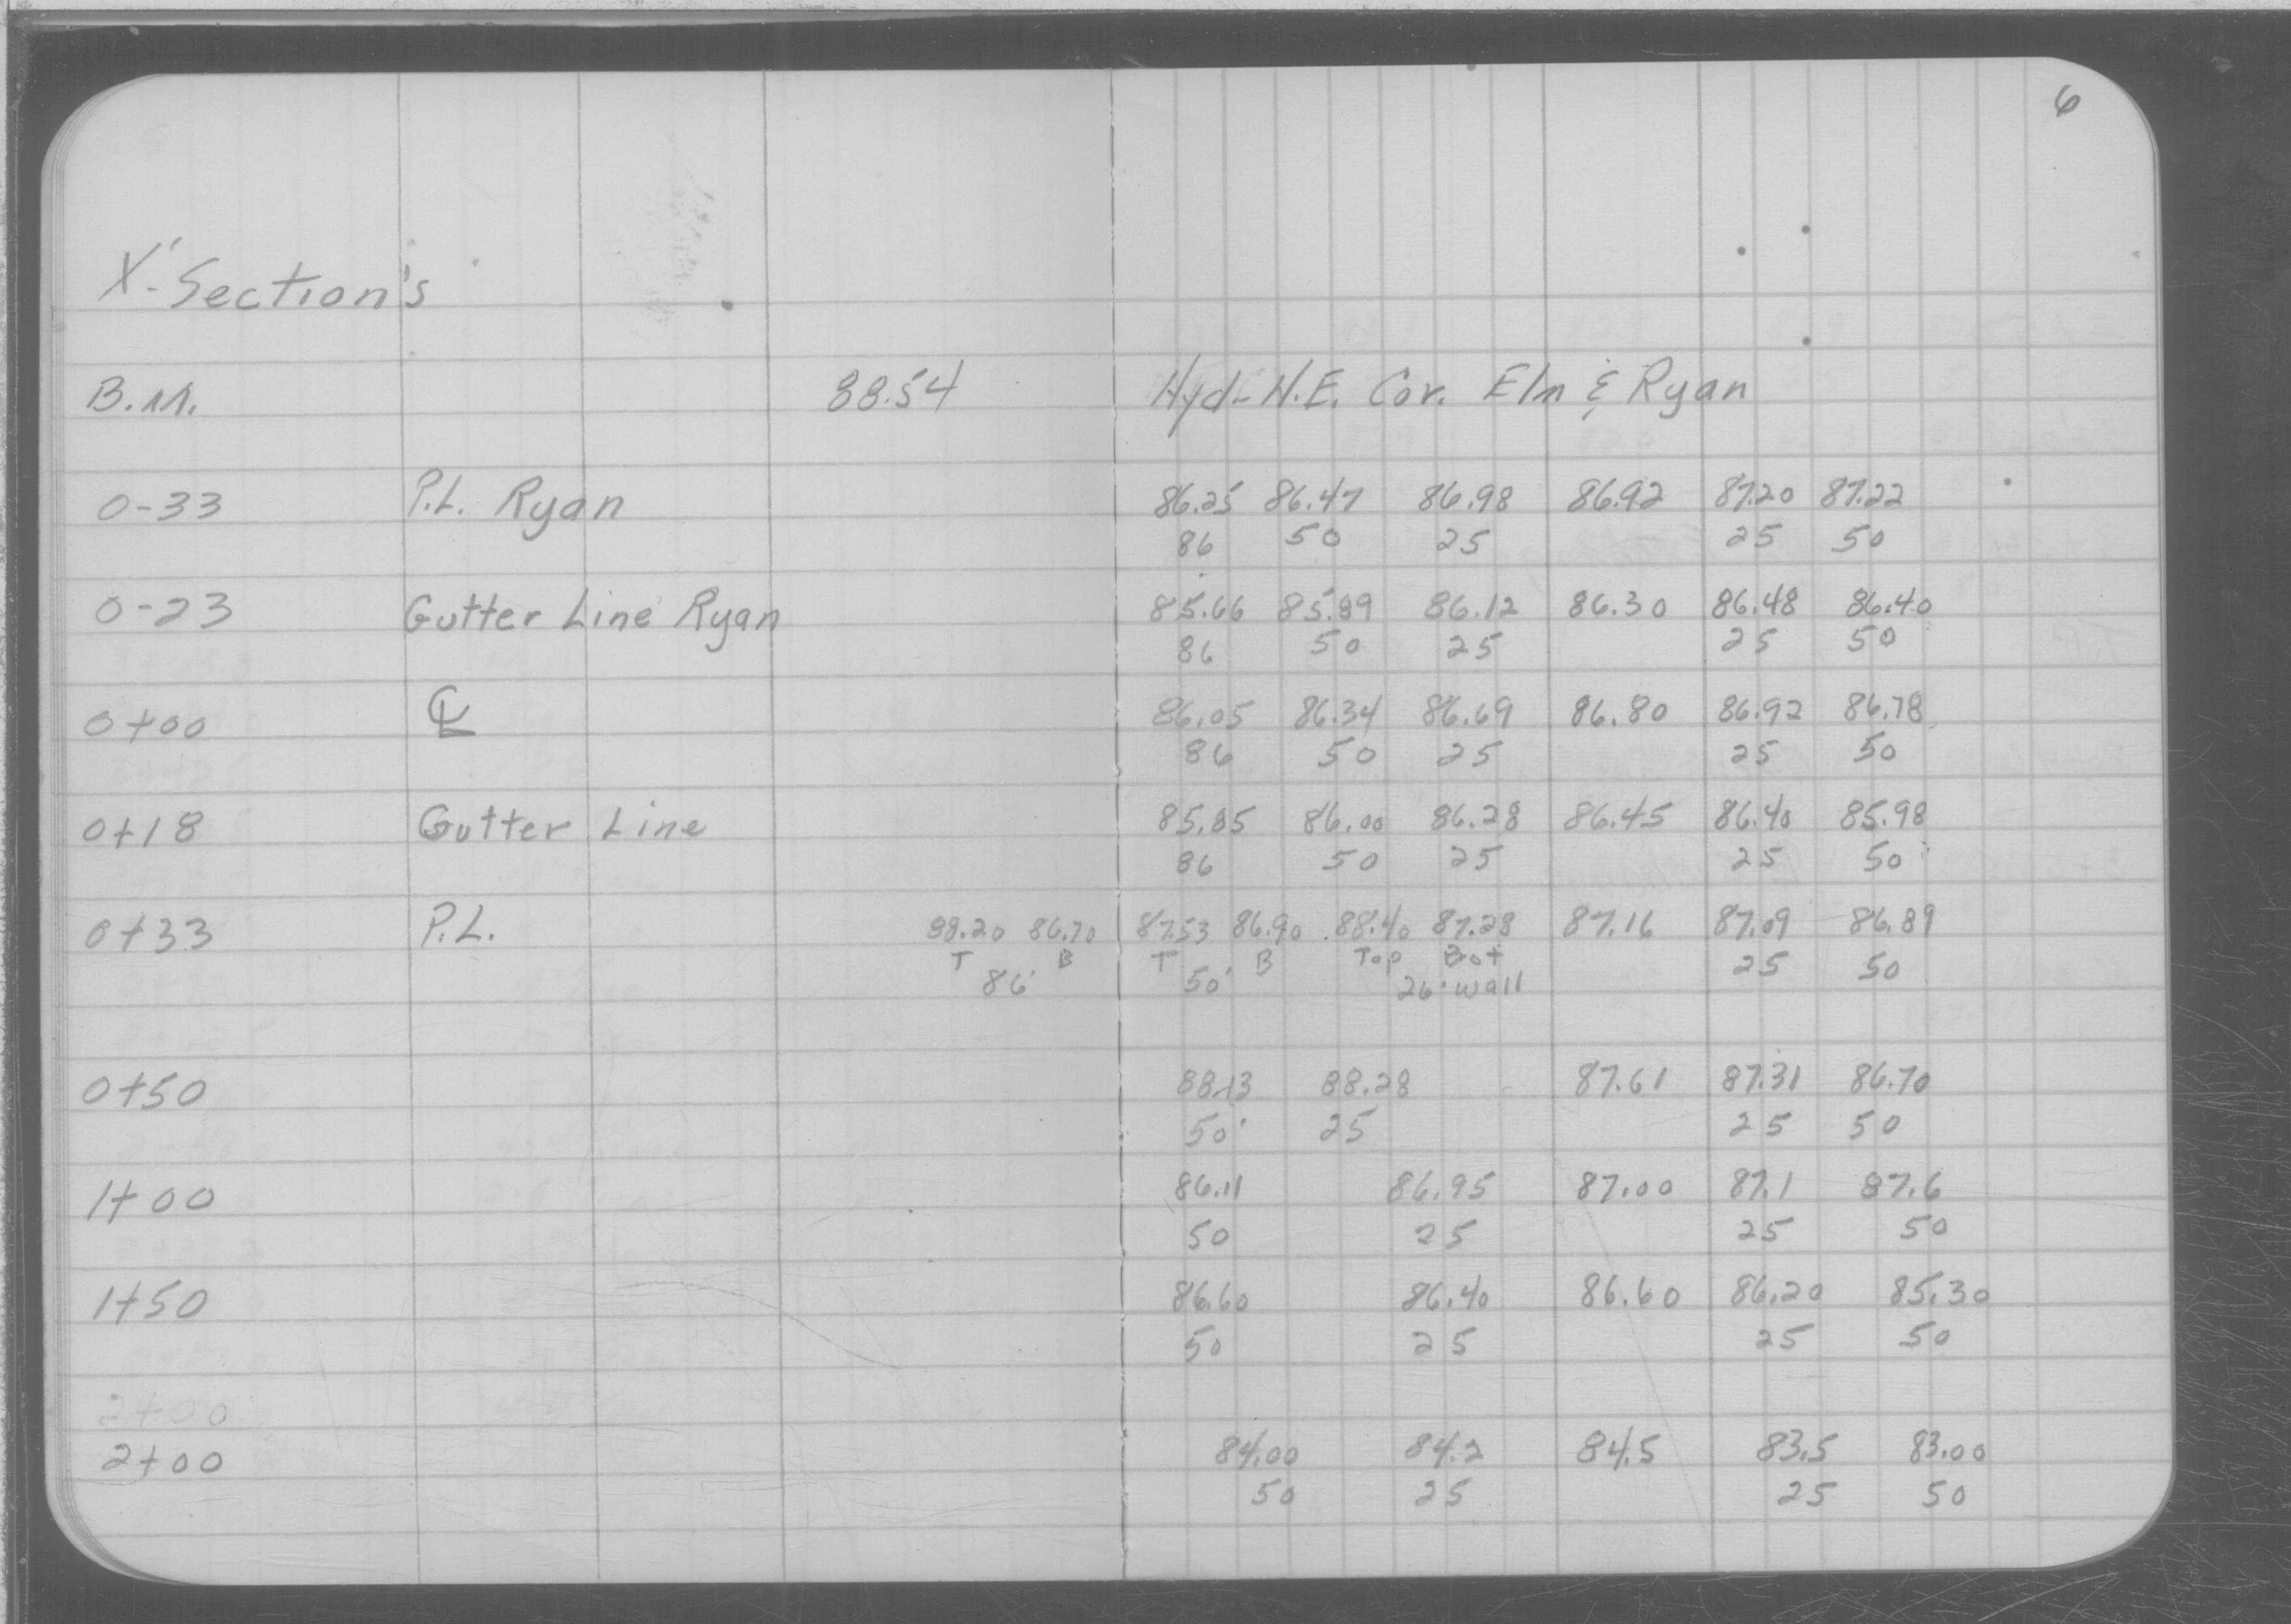 6
X'-Section's
B.M. 88.54 Hyd- N.E. Cor. Elm & Ryan
0-33 P.L. Ryan 86.25 86.47 86.98 86.92 87.20 87.22
86 50 25 25 50
0-23 Gutter Line Ryan 85.66 85.89 86.12 86.30 86.48 86.40
86 50 25 25 50
0+00 ℄ 86.05 86.34 86.69 86.80 86.92 86.78
86 50 25 25 50
0+18 Gutter Line 85.85 86.00 86.28 86.45 86.40 85.98
86 50 25 25 50
0+33 P.L. 88.20 86.70 87.53 86.90 88.40 87.28 87.16 87.09 86.89
T B T B Top Bot 25 50
86' 50' 26' wall
0+50 88.13 88.28 87.61 87.31 86.70
50' 25 25 50
1+00 86.11 86.95 87.00 87.1 87.6
50 25 25 50
1+50 86.60 86.40 86.60 86.20 85.30
50 25 25 50
2+00
2+00 84.00 84.2 84.5 83.5 83.00
50 25 25 50